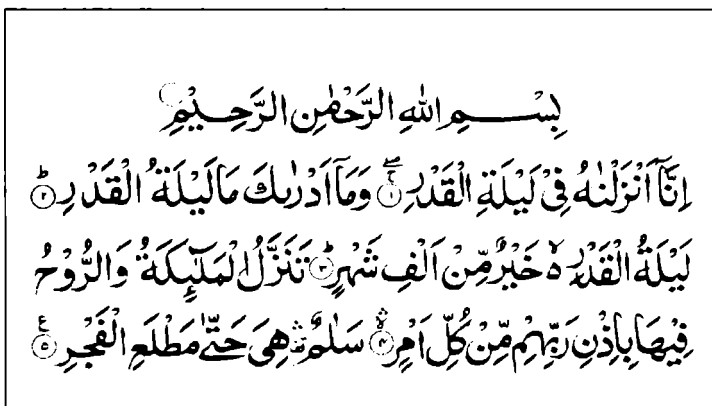 بِسْــــمِ اللهِ الرَّحْمٰنِ الرَّحِـيْمِ
اِنَّآ اَنْزَلْنٰهُ فِيْ لَيْلَةِ الْقَدْرِ ۚ﴿۱﴾ وَمَآ اَدْرٰىكَ مَا لَيْلَةُ الْقَدْرِ ؕ﴿۲﴾
لَيْلَةُ الْقَدْرِ ۙ خَيْرٌ مِّنْ اَلْفِ شَهْرٍ ؕ﴿۳﴾ تَنَزَّلُ الْمَلٰٓئِكَةُ وَالرُّوْحُ
فِيْهَا بِاِذْنِ رَبِّهِمْ مِّنْ كُلِّ اَمْرٍ ۛ﴿۴﴾ سَلٰمٌ ۛ هِيَ حَتّٰى مَطْلَعِ الْفَجْرِ ﴿۵﴾